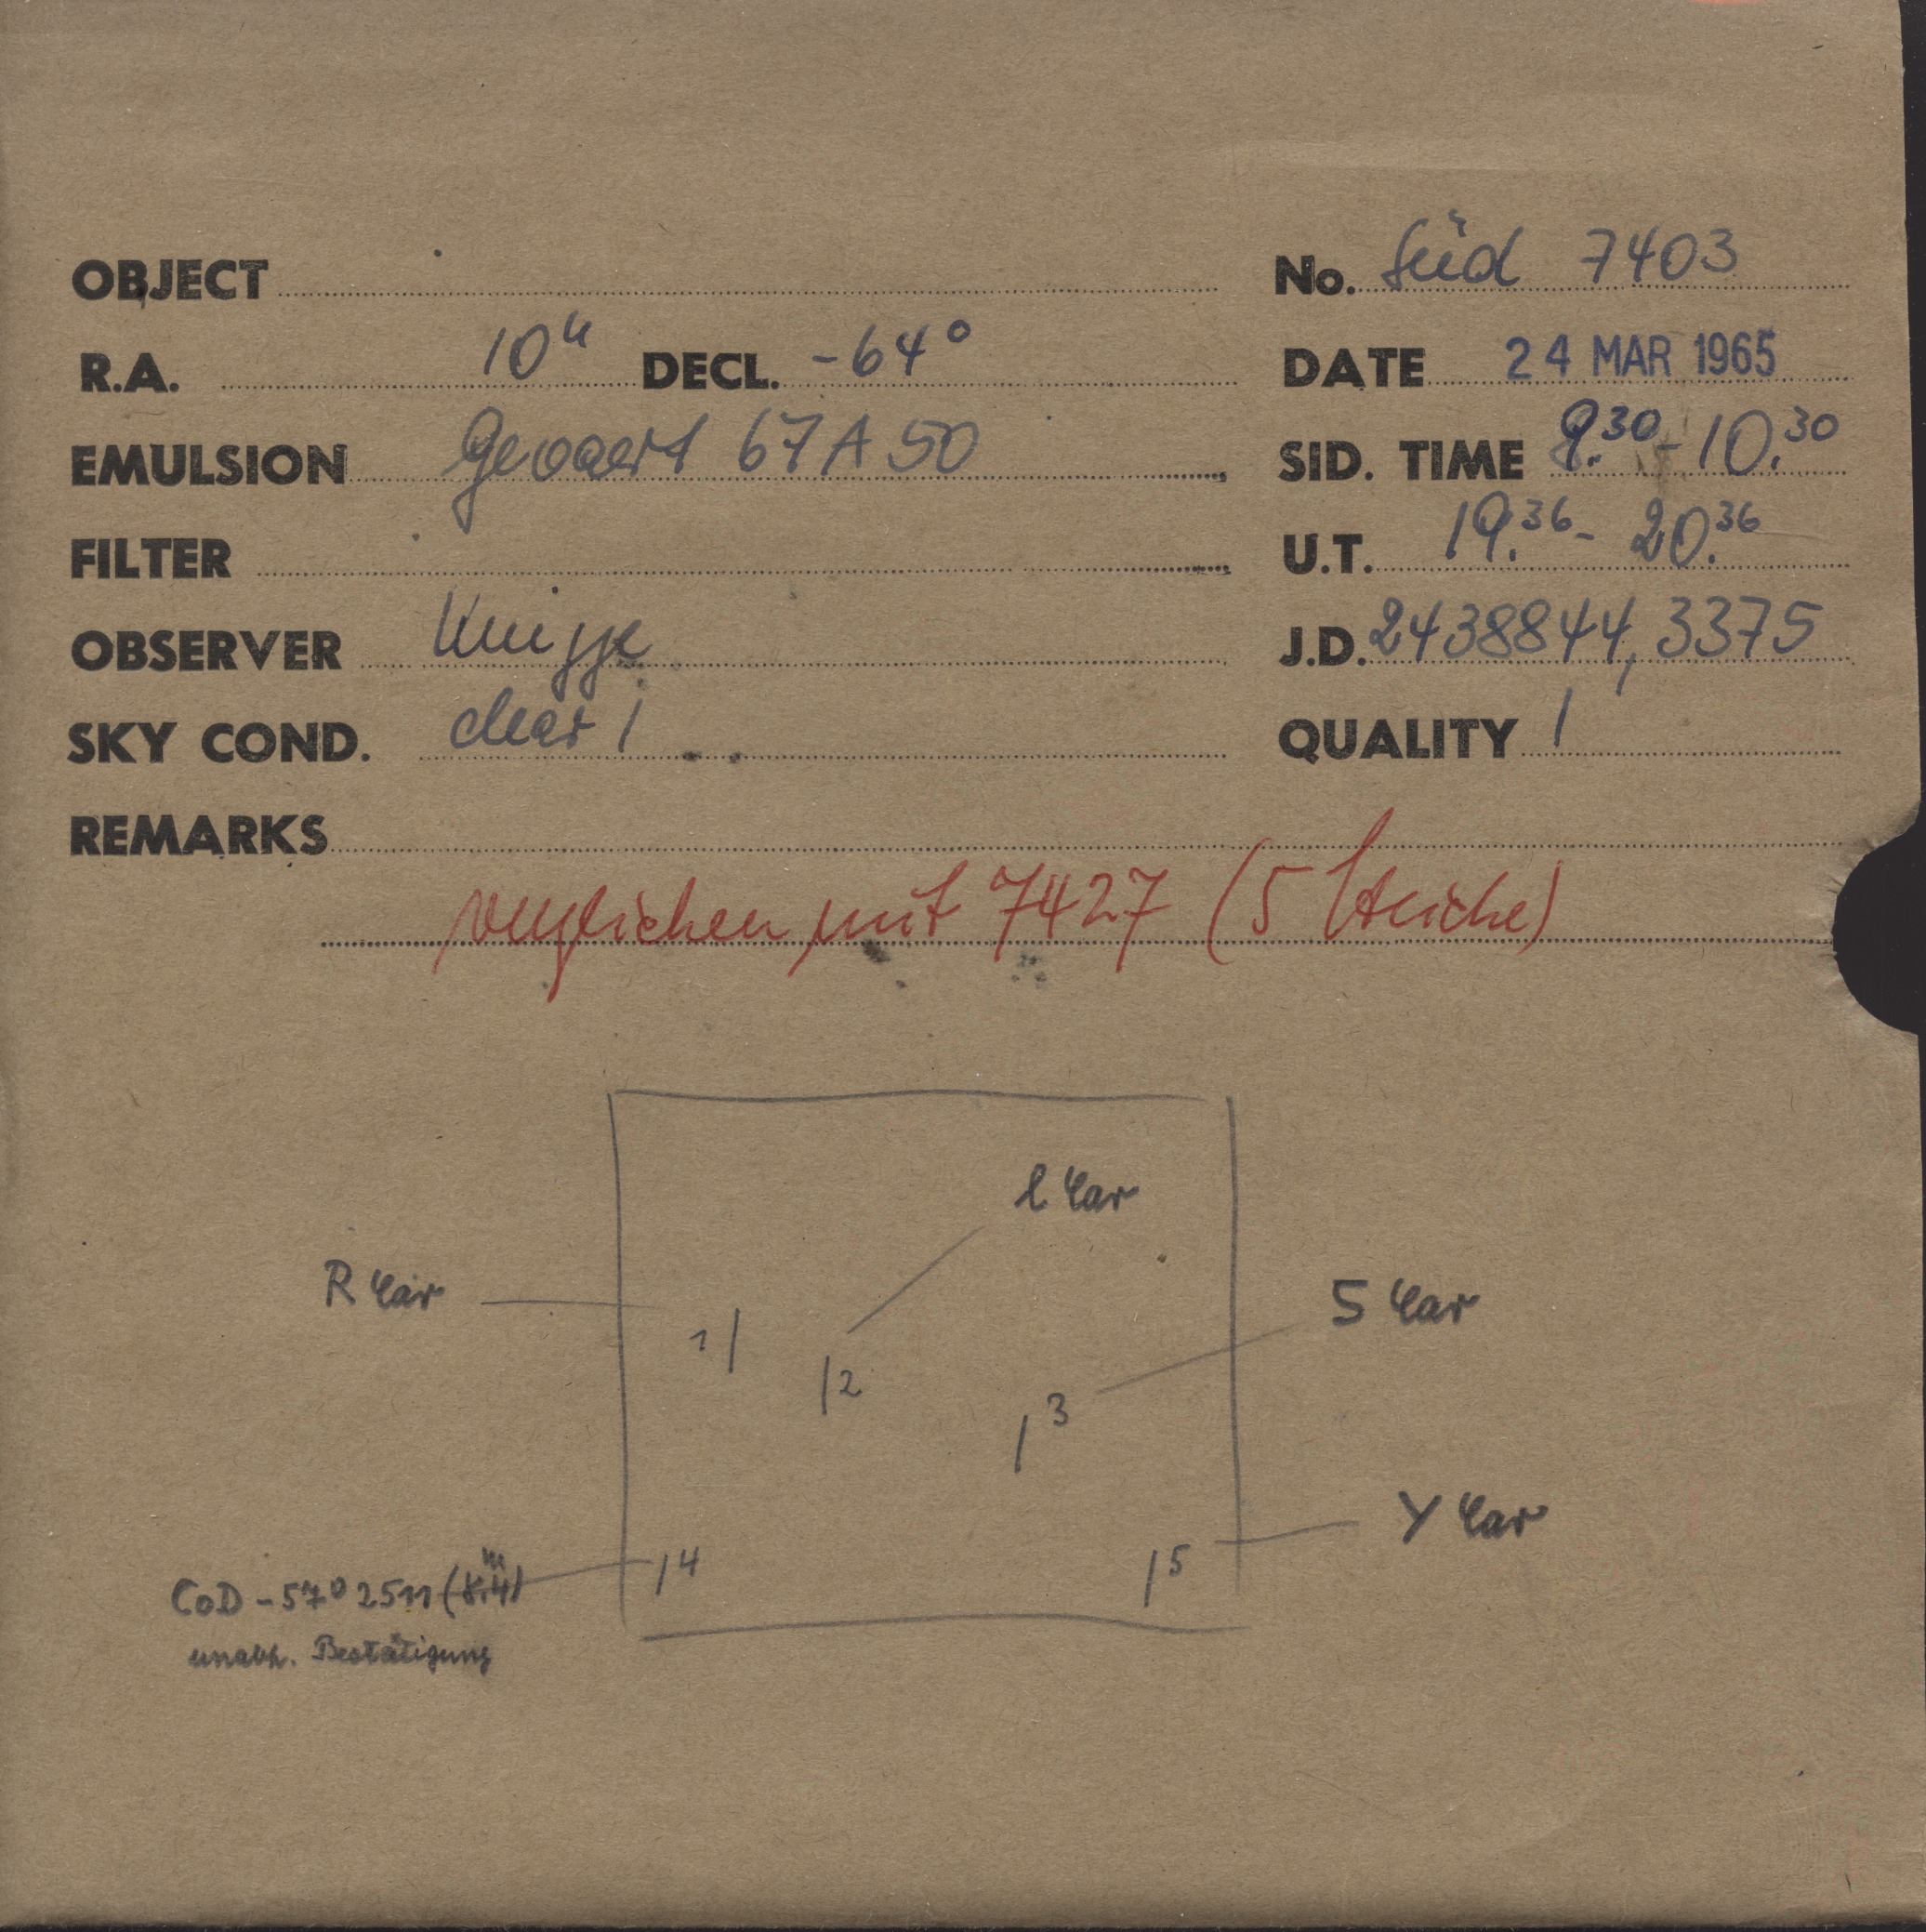 OBJECT No. Süd 7403
R.A. 10h DECL. -64° DATE 24 MAR 1965
EMULSION Gevaert 67A50 SID. TIME 9.30 - 10.30
FILTER U.T. 19.36 - 20.36
OBSERVER Knigge J.D. 2438844,3375
SKY COND. clear 1 QUALITY 1
REMARKS
verglichen mit 7427 (5 Striche)
l Car
R Car
S Car
1
2
3
Y Car
4
5
CoD -57° 2511 (8m.4)
unabh. Bestätigung